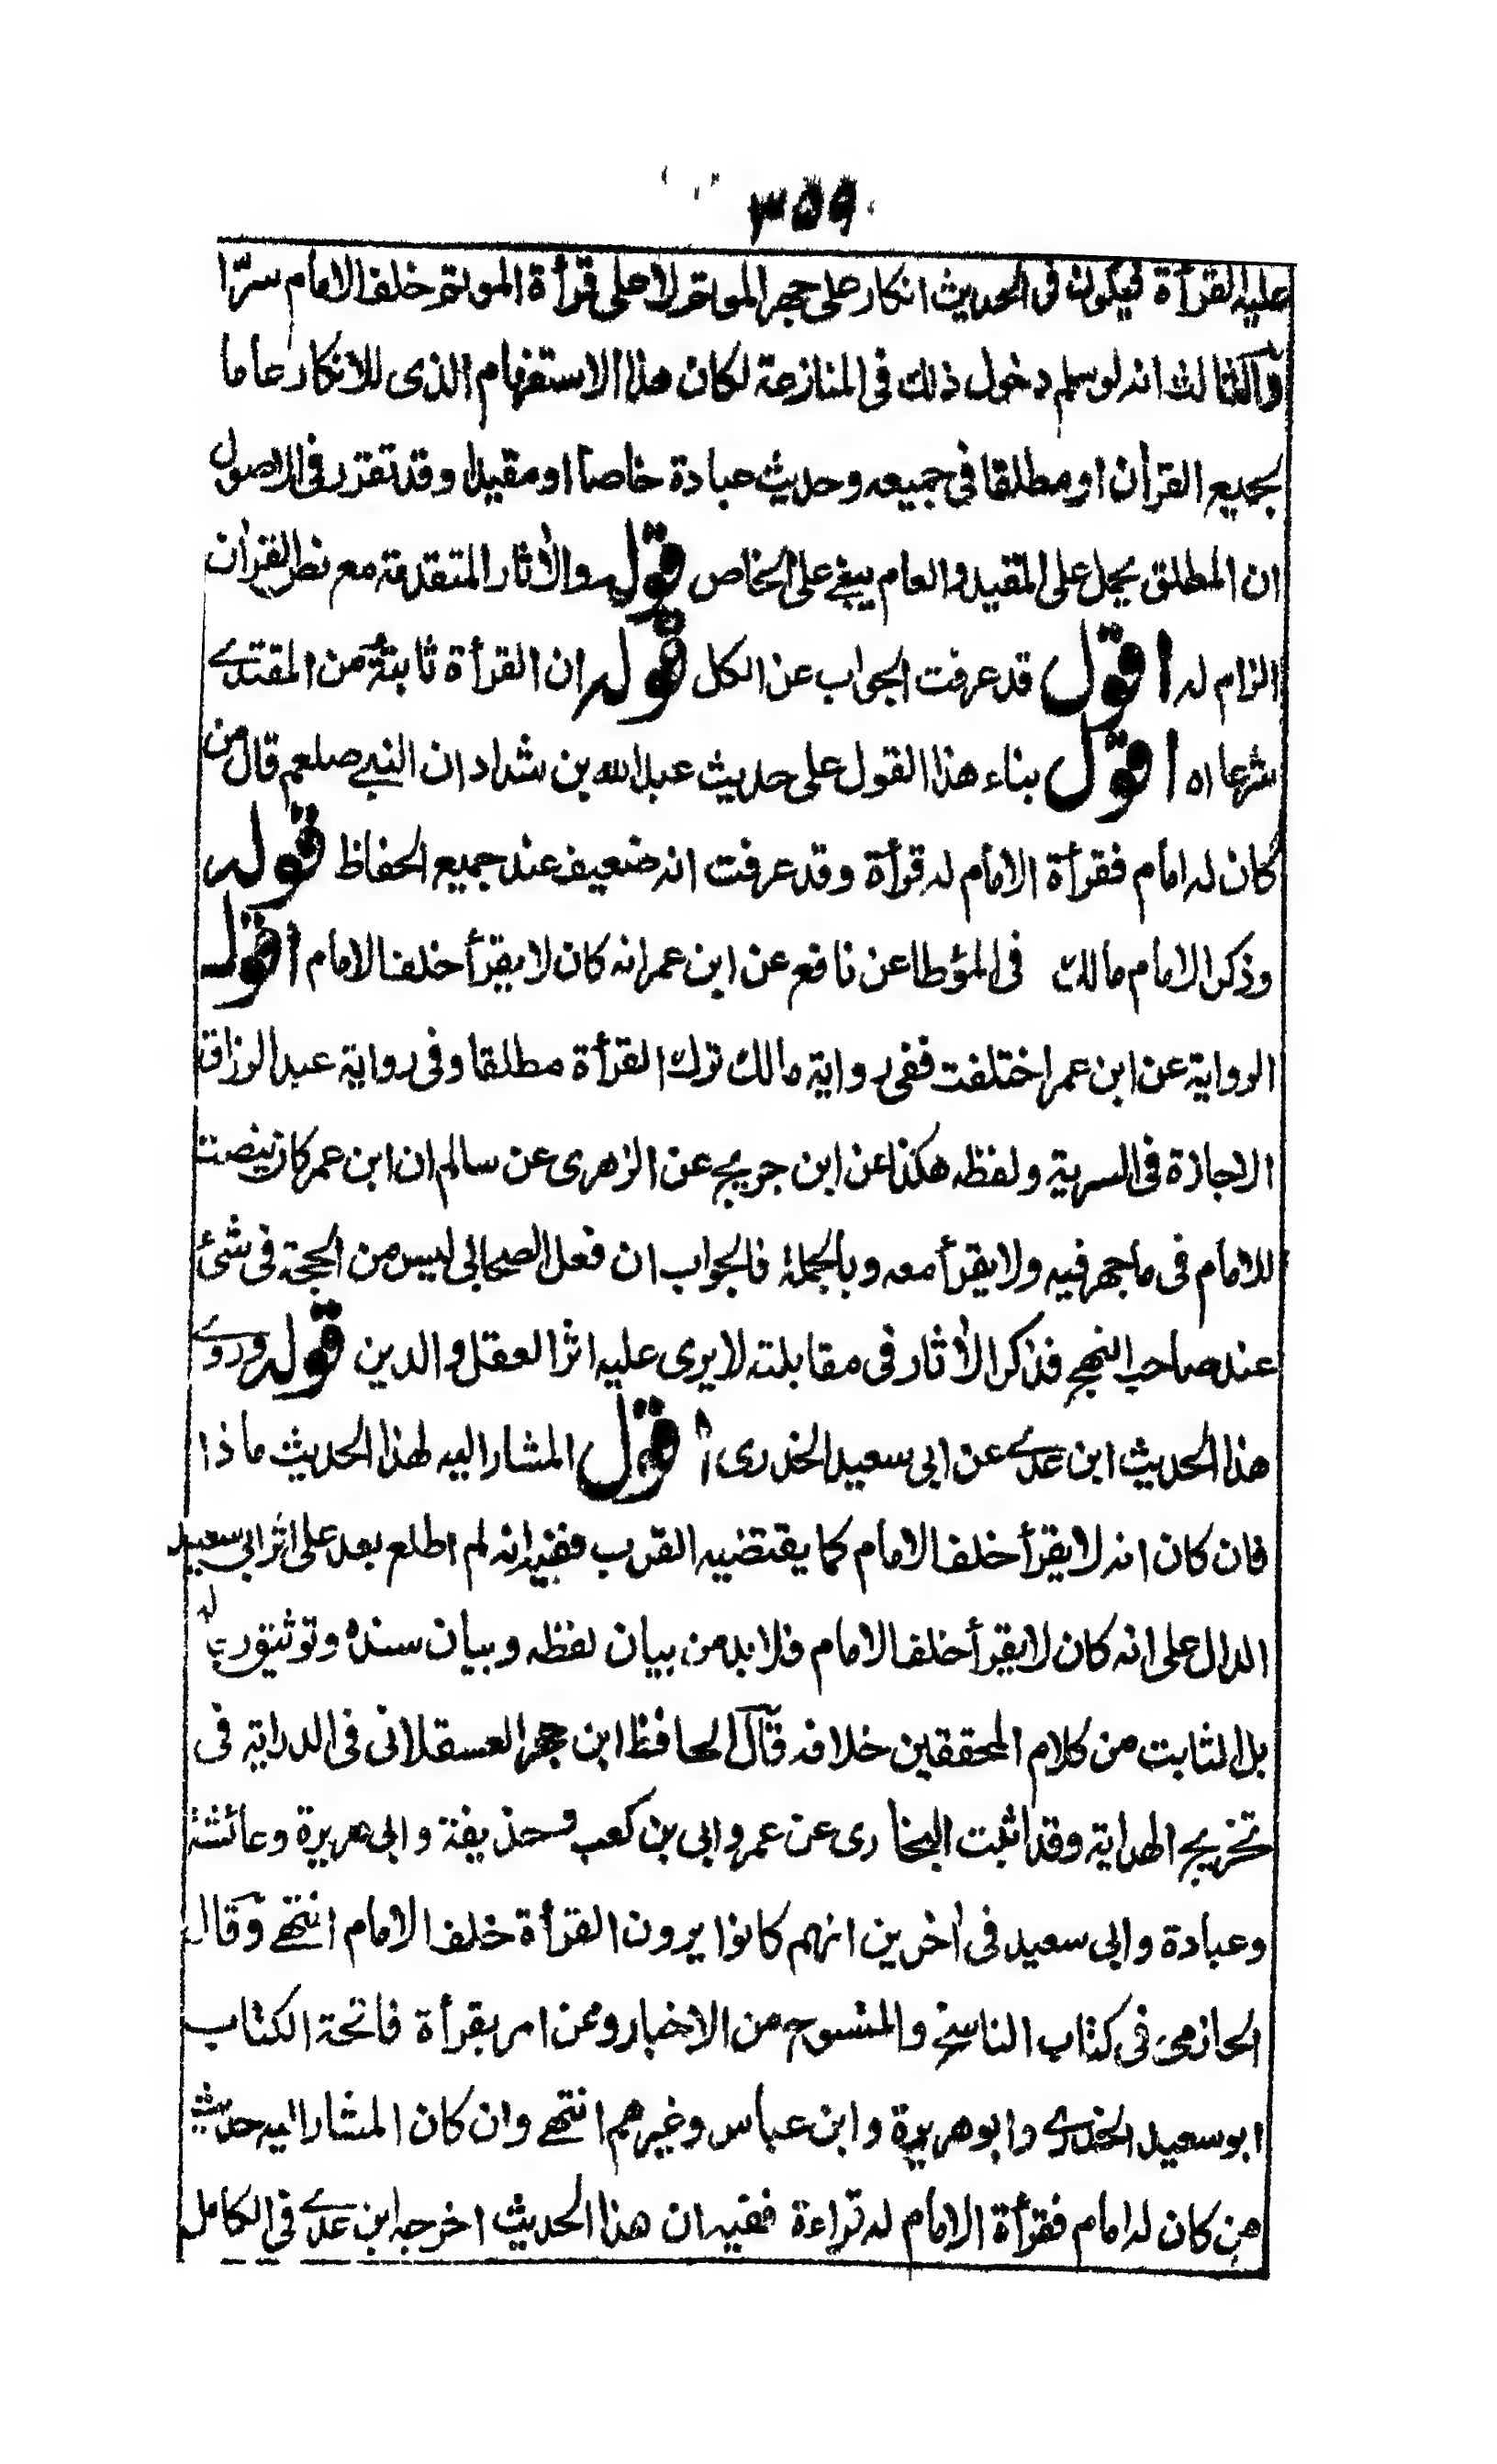 ٣٥٩
عليه القرأة فيكون فى الحديث انكار على جهر الموتم لا على قرأة الموتم خلف الامام سرّا
وآلثالث انه لو سلم دخول ذلك فى المنازعة لكان هذا الاستفهام الذى للانكار عاما
بجميع القرأن او مطلقا فى جميعه وحديث عبادة خاصا او مقيدا وقد تقرر فى الاصول
ان المطلق يحمل على المقيد والعام يبنے على الخاص قوله والأثار المتقدمة مع نص القرأن
الزام له اقول قد عرفت الجواب عن الكل قوله ان القرأة ثابتة من المقتدے
شرعا اه اقول بناء هذا القول على حديث عبد الله بن شداد ان النبے صلعم قال من
كان له امام فقرأة الامام له قرأة وقد عرفت انه ضعيف عند جميع الحفاظ قوله
وذكر الامام مالك فى المؤطا عن نافع عن ابن عمر انه كان لا يقرأ خلف الامام اقول
الرواية عن ابن عمر اختلفت ففى رواية مالك ترك القرأة مطلقا وفى رواية عبد الرزاق
الاجازة فى السرية ولفظه هكذا عن ابن جريج عن الزهرى عن سالم ان ابن عمر كان ينصت
للامام فى ما جهر فيه ولا يقرأ معه وبالجملة فالجواب ان فعل الصحابى ليس من الحجة فى شئ
عند صاحب النهج فذكر الأثار فى مقابلته لا يرى عليه اثر العقل والدين قوله وروے
هذا الحديث ابن عدے عن ابى سعيد الخدرى اقول المشار اليه لهذا الحديث ما ذا
فان كان انه لا يقرأ خلف الامام كما يقتضيه القرب ففيه انه لم اطلع بعد على اثر ابى سعيد
الدال على انه كان لا يقرأ خلف الامام فلا بد من بيان لفظه وبيان سنده وتوثيق رجاله
بل الثابت من كلام المحققين خلافه قآل الحافظ ابن حجر العسقلانى فى الدراية فى
تخريج الهداية وقد اثبت البخارى عن عمر وابى بن كعب وحذيفة وابى هريرة وعائشة
وعبادة وابى سعيد فى أخرين انهم كانوا يرون القرأة خلف الامام انتهے وقآل
الحازمى فى كتاب الناسخ والمنسوخ من الاخبار وممن امر بقرأة فاتحة الكتاب
ابو سعيد الخدرى وابو هريرة وابن عباس وغيرهم انتهے وان كان المشار اليه حديث
من كان له امام فقرأة الامام له قراءة ففيه ان هذا الحديث اخرجه ابن عدے فى الكامل